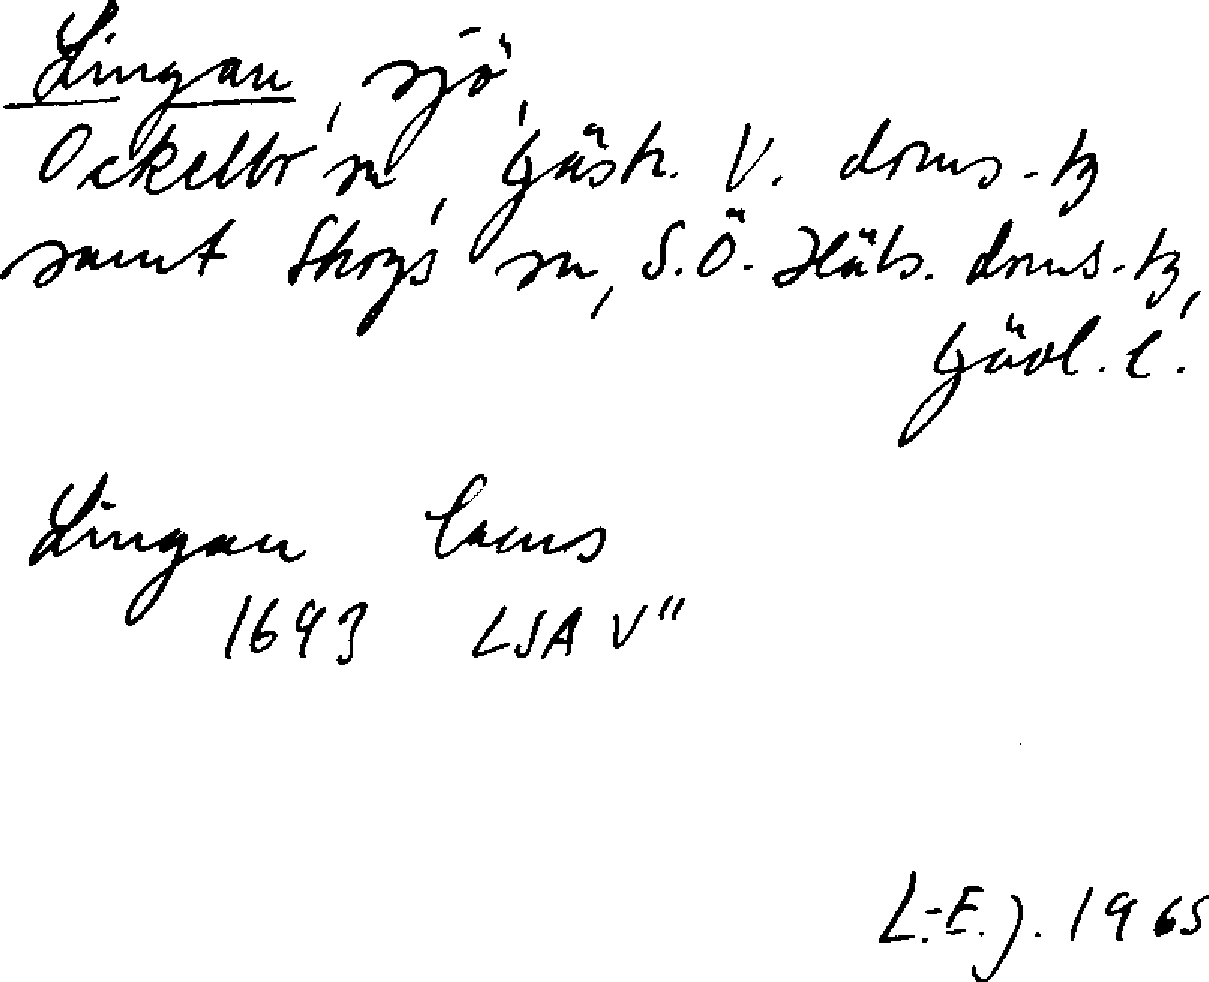 Lingan, sjö,
Ockelbo sn, Gästr. V. doms.-tg
samt Skogs sn, S.Ö. Häls. doms.-tg,
Gävl. l.
Lingan lacus
1693 LSA V"
L.-E. J. 1965